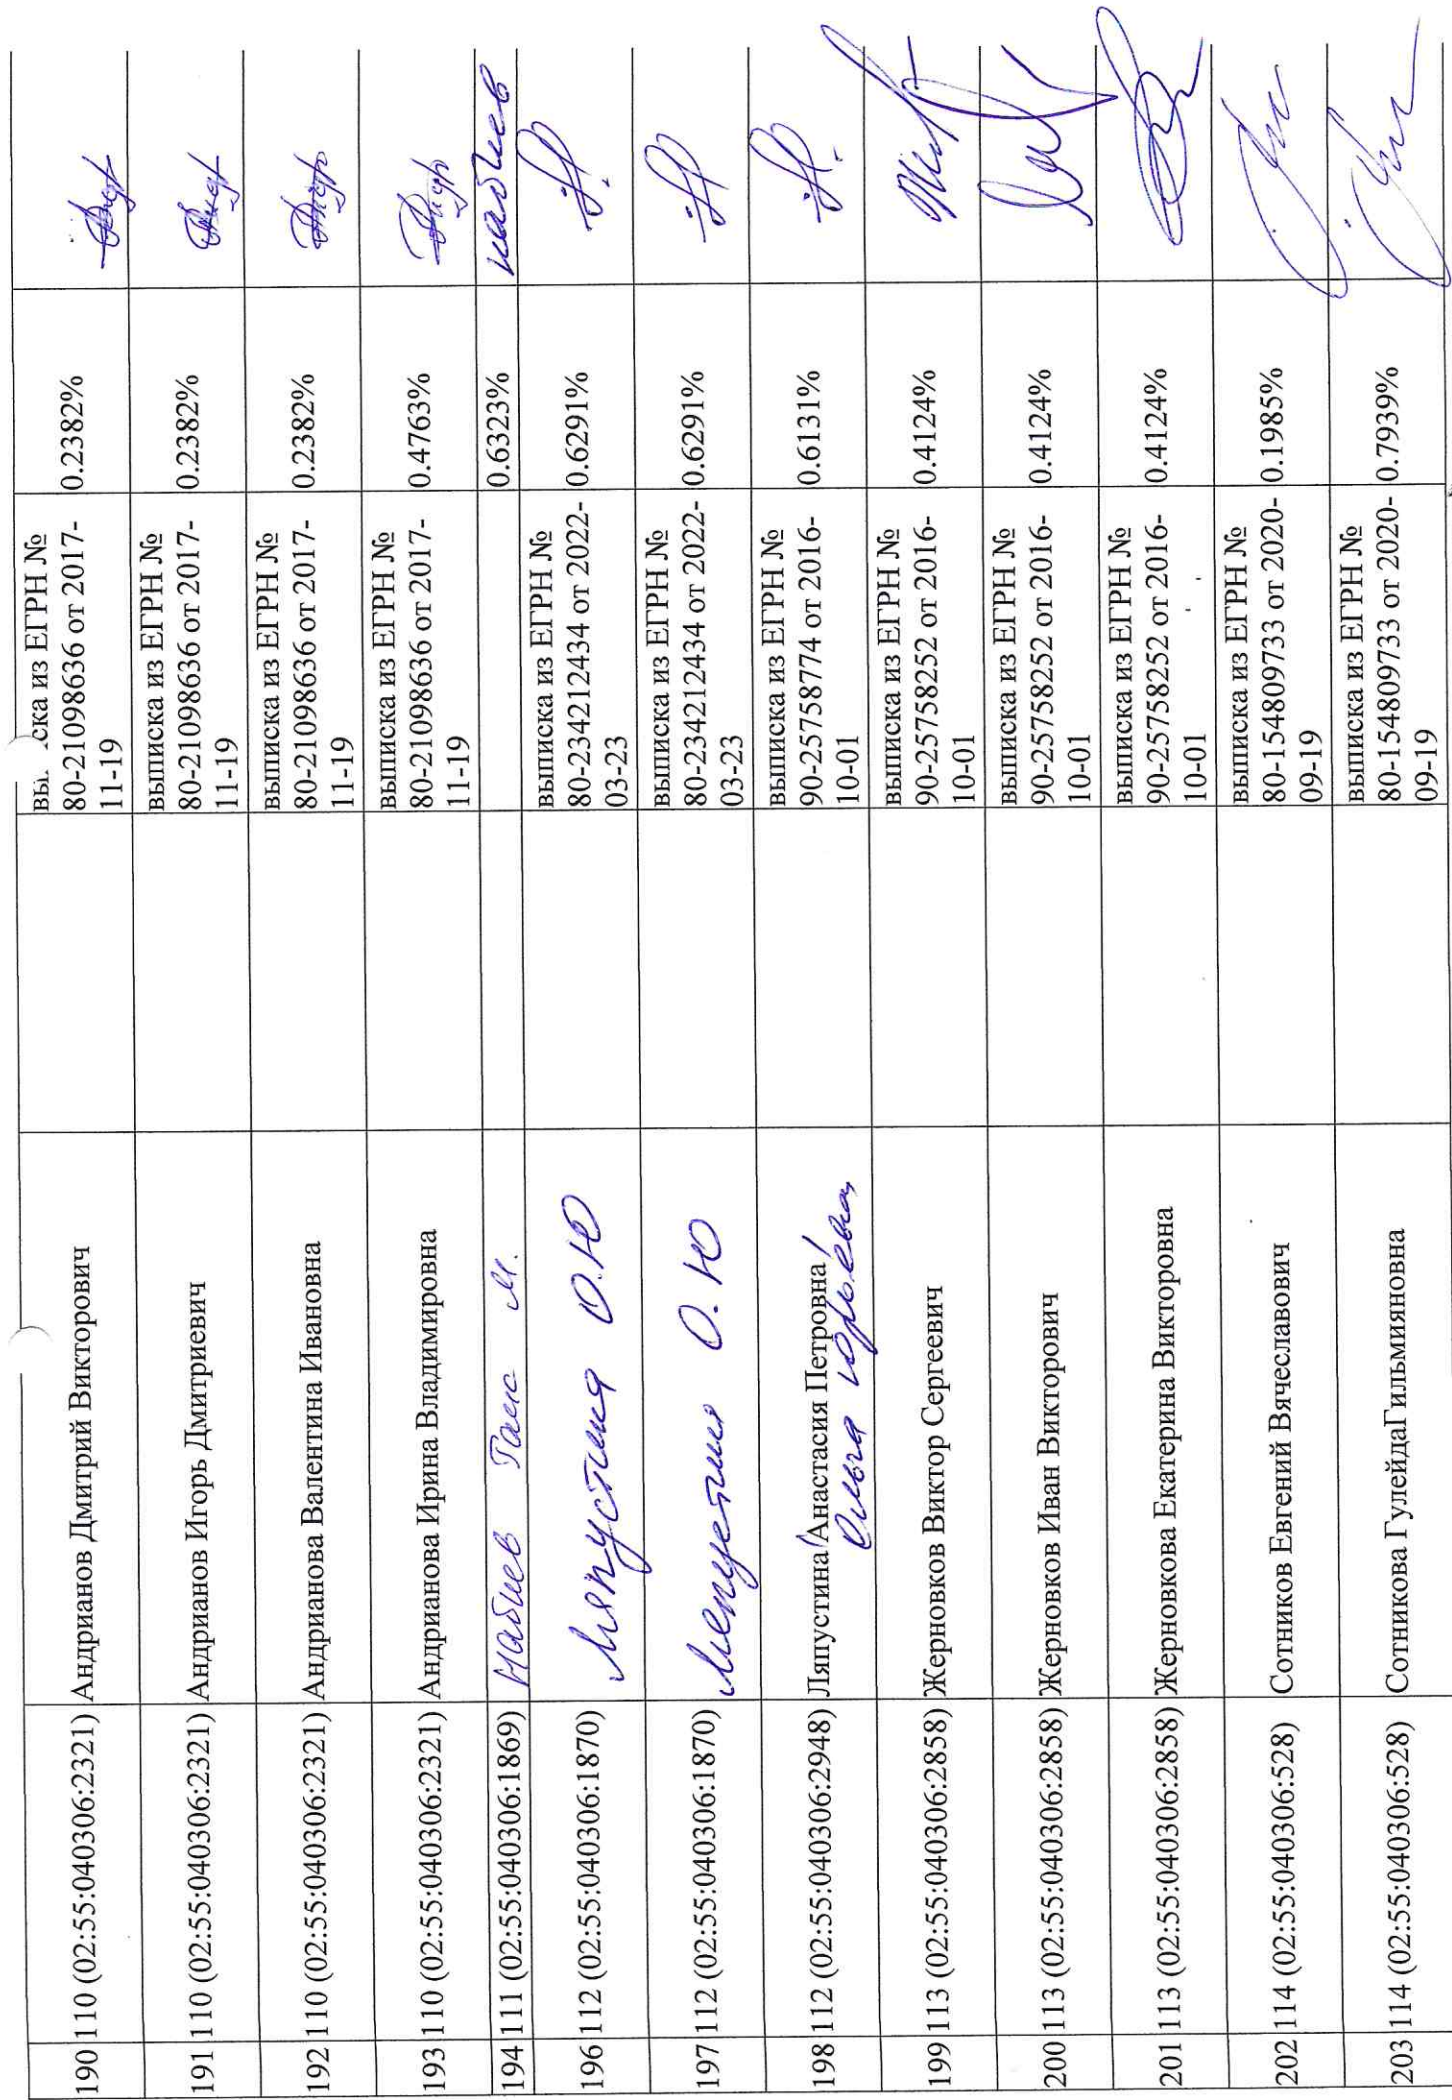 190 110 (02:55:040306:2321) Андрианов Дмитрий Викторович ска из ЕГРН № 0.2382%
80-21098636 от 2017-
11-19
191 110 (02:55:040306:2321) Андрианов Игорь Дмитриевич выписка из ЕГРН № 0.2382%
80-21098636 от 2017-
11-19
192 110 (02:55:040306:2321) Андрианова Валентина Ивановна выписка из ЕГРН № 0.2382%
80-21098636 от 2017-
11-19
193 110 (02:55:040306:2321) Андрианова Ирина Владимировна выписка из ЕГРН № 0.4763%
80-21098636 от 2017-
11-19
194 111 (02:55:040306:1869) Набиев М. 0.6323% Набиев
196 112 (02:55:040306:1870) Ляпустина О.Ю выписка из ЕГРН № 0.6291%
80-234212434 от 2022-
03-23
197 112 (02:55:040306:1870) Ляпустина О.Ю выписка из ЕГРН № 0.6291%
80-234212434 от 2022-
03-23
198 112 (02:55:040306:2948) Ляпустина Анастасия Петровна выписка из ЕГРН № 0.6131%
Ольга Юрьевна 90-25758774 от 2016-
10-01
199 113 (02:55:040306:2858) Жерновков Виктор Сергеевич выписка из ЕГРН № 0.4124%
90-25758252 от 2016-
10-01
200 113 (02:55:040306:2858) Жерновков Иван Викторович выписка из ЕГРН № 0.4124%
90-25758252 от 2016-
10-01
201 113 (02:55:040306:2858) Жерновкова Екатерина Викторовна выписка из ЕГРН № 0.4124%
90-25758252 от 2016-
10-01
202 114 (02:55:040306:528) Сотников Евгений Вячеславович выписка из ЕГРН № 0.1985%
80-154809733 от 2020-
09-19
203 114 (02:55:040306:528) Сотникова ГулейдаГильмияновна выписка из ЕГРН № 0.7939%
80-154809733 от 2020-
09-19